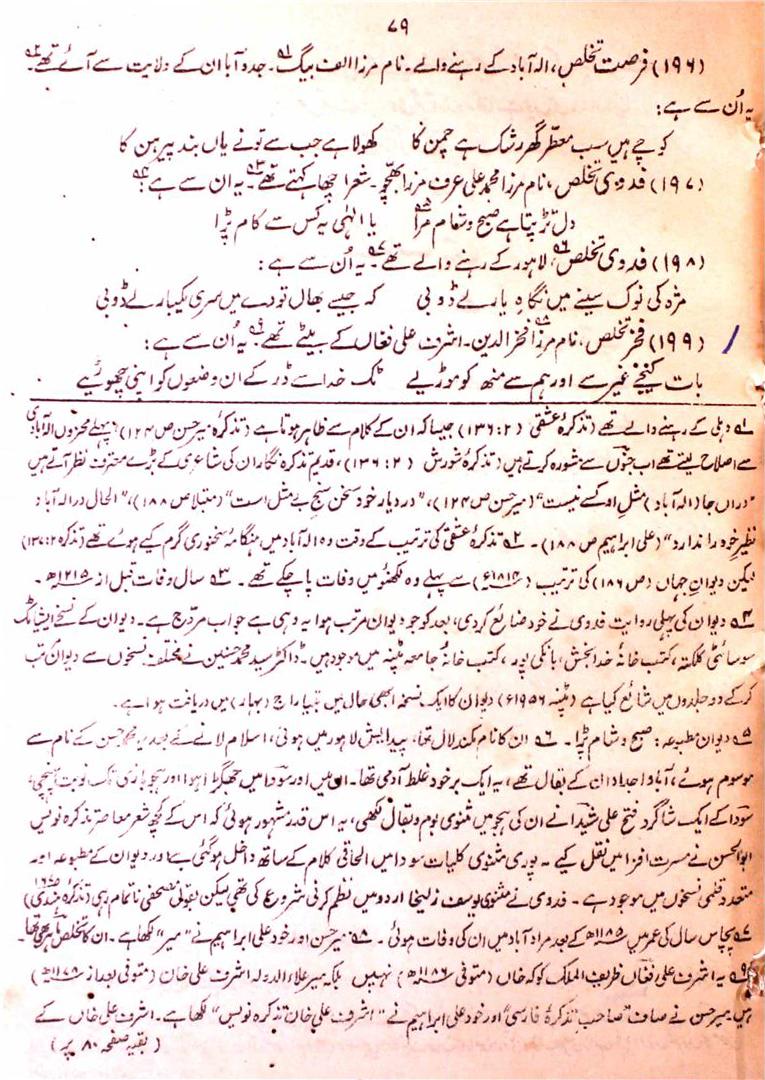 ۷۹
(۱۹۶) فرصت تخلص، الہ آباد کے رہنے والے۔ نام مرزا الف بیگ ۱؎۔ جد و آبا ان کے ولایت سے آئے تھے ۲؎۔
یہ اُن سے ہے:
کوچے ہیں سب معطّر گھر رشک ہے چمن کا کھولا ہے جب سے تونے یاں بند پیرہن کا
(۱۹۷) فدوی تخلص، نام مرزا محمد علی عرف مرزا بھجّو۔ شعر اچھا کہتے تھے ۳؎۔ یہ ان سے ہے ۴؎:
دل تڑپتا ہے صبح و شام مرا ۵؎ یا الٰہی یہ کس سے کام پڑا
(۱۹۸) فدوی تخلص ۶؎، لاہور کے رہنے والے تھے ۷؎۔ یہ اُن سے ہے:
مژہ کی نوک سینے میں نگاہِ یار لے ڈوبی کہ جیسے بھال تودے میں سری یکبار لے ڈوبی
(۱۹۹) فخر تخلص، نام مرزا ۸؎ فخر الدین۔ اشرف علی فغاں کے بیٹے تھے ۹؎۔ یہ اُن سے ہے:
بات کیجے غیر سے اور ہم سے منھ کو موڑیے ٹک خدا سے ڈر کے ان وضعوں کو اپنی چھوڑیے
۱؎ دہلی کے رہنے والے تھے (تذکرۂ عشقی ۲: ۱۳۶) جیسا کہ ان کے کلام سے ظاہر ہوتا ہے (تذکرۂ میر حسن ص ۱۲۴) پہلے محزوں الہ آبادی
سے اصلاح لیتے تھے اب جنوں سے مشورہ کرتے ہیں (تذکرۂ شورش ۲: ۱۳۶)، قدیم تذکرہ نگار ان کی شاعری کے بڑے معترف نظر آتے ہیں
"دراں جا (الہ آباد) مثلِ او کسے نیست" (میر حسن ص ۱۲۴)، "در دیار خود سخن سنجِ بے مثل است" (مبتلا ص ۱۸۸)، "الحال در الہ آباد
نظیرِ خود را ندارد" (علی ابراہیم ص ۱۸۸)۔ ۲؎ تذکرۂ عشقی کی ترتیب کے وقت وہ الہ آباد میں ہنگامۂ سخنوری گرم کیے ہوئے تھے (تذکرہ ۲: ۱۳۷)
لیکن دیوانِ جہاں (ص ۱۸۶) کی ترتیب (۱۸۱۴ء) سے پہلے وہ لکھنؤ میں وفات پا چکے تھے۔ ۳؎ سال وفات قبل از ۱۲۱۵ھ۔
۴؎ دیوان کی پہلی روایت فدوی نے خود ضائع کر دی، بعد کو جو دیوان مرتب ہوا یہ وہی ہے جو اب مروّج ہے۔ دیوان کے نسخے ایشیاٹک
سوسائٹی کلکتہ، کتب خانۂ خدا بخش، بانکی پور، کتب خانۂ جامعہ پٹنہ میں موجود ہیں۔ ڈاکٹر سید محمد حسنین نے مختلف نسخوں سے دیوان مرتب
کرکے دو جلدوں میں شائع کیا ہے (پٹنہ ۱۹۵۶ء) دیوان کا ایک نسخہ ابھی حال میں بتیا راج (بہار) میں دریافت ہوا ہے۔
۵؎ دیوان مطبوعہ: صبح و شام پڑا۔ ۶؎ ان کا نام مکند لال تھا، پیدایش لاہور میں ہوئی، اسلام لانے کے بعد حسن کے نام سے
موسوم ہوئے، آبا و اجداد ان کے بقال تھے، یہ ایک بر خود غلط آدمی تھا۔ ان میں اور سودا میں جھگڑا ہوا اور ہجو بازی تک نوبت پہنچی،
سودا کے ایک شاگرد فتح علی شیدا نے ان کی ہجو میں مثنوی بوم و بقال لکھی، یہ اس قدر مشہور ہوئی کہ اس کے کچھ شعر معاصر تذکرہ نویس
ابوالحسن نے مسرت افزا میں نقل کیے۔ پوری مثنوی کلیات سودا میں الحاقی کلام کے ساتھ داخل ہوگئی ہے اور دیوان کے مطبوعہ اور
متعدد قلمی نسخوں میں موجود ہے۔ فدوی نے مثنوی یوسف زلیخا اردو میں نظم کرنی شروع کی تھی لیکن بقول مصحفی ناتمام رہی (تذکرۂ ہندی)
۷؎ پچاس سال کی عمر میں ۱۱۸۵ھ کے بعد مراد آباد میں ان کی وفات ہوئی۔ ۸؎ میر حسن اور خود علی ابراہیم نے "میر" لکھا ہے۔ ان کا تخلص
۹؎ یہ اشرف علی فغاں ظریف الملک کوکہ خاں (متوفی ۱۱۸۶ھ) نہیں بلکہ میر علاء الدولہ اشرف علی خان (متوفی بعد از ۱۱۷۸ھ)
ہیں میر حسن نے صاف "صاحب تذکرۂ فارسی" اور خود علی ابراہیم نے "اشرف علی خان تذکرہ نویس" لکھا ہے۔ اشرف علی خاں کے
(بقیہ صفحہ ۸۰ پر)